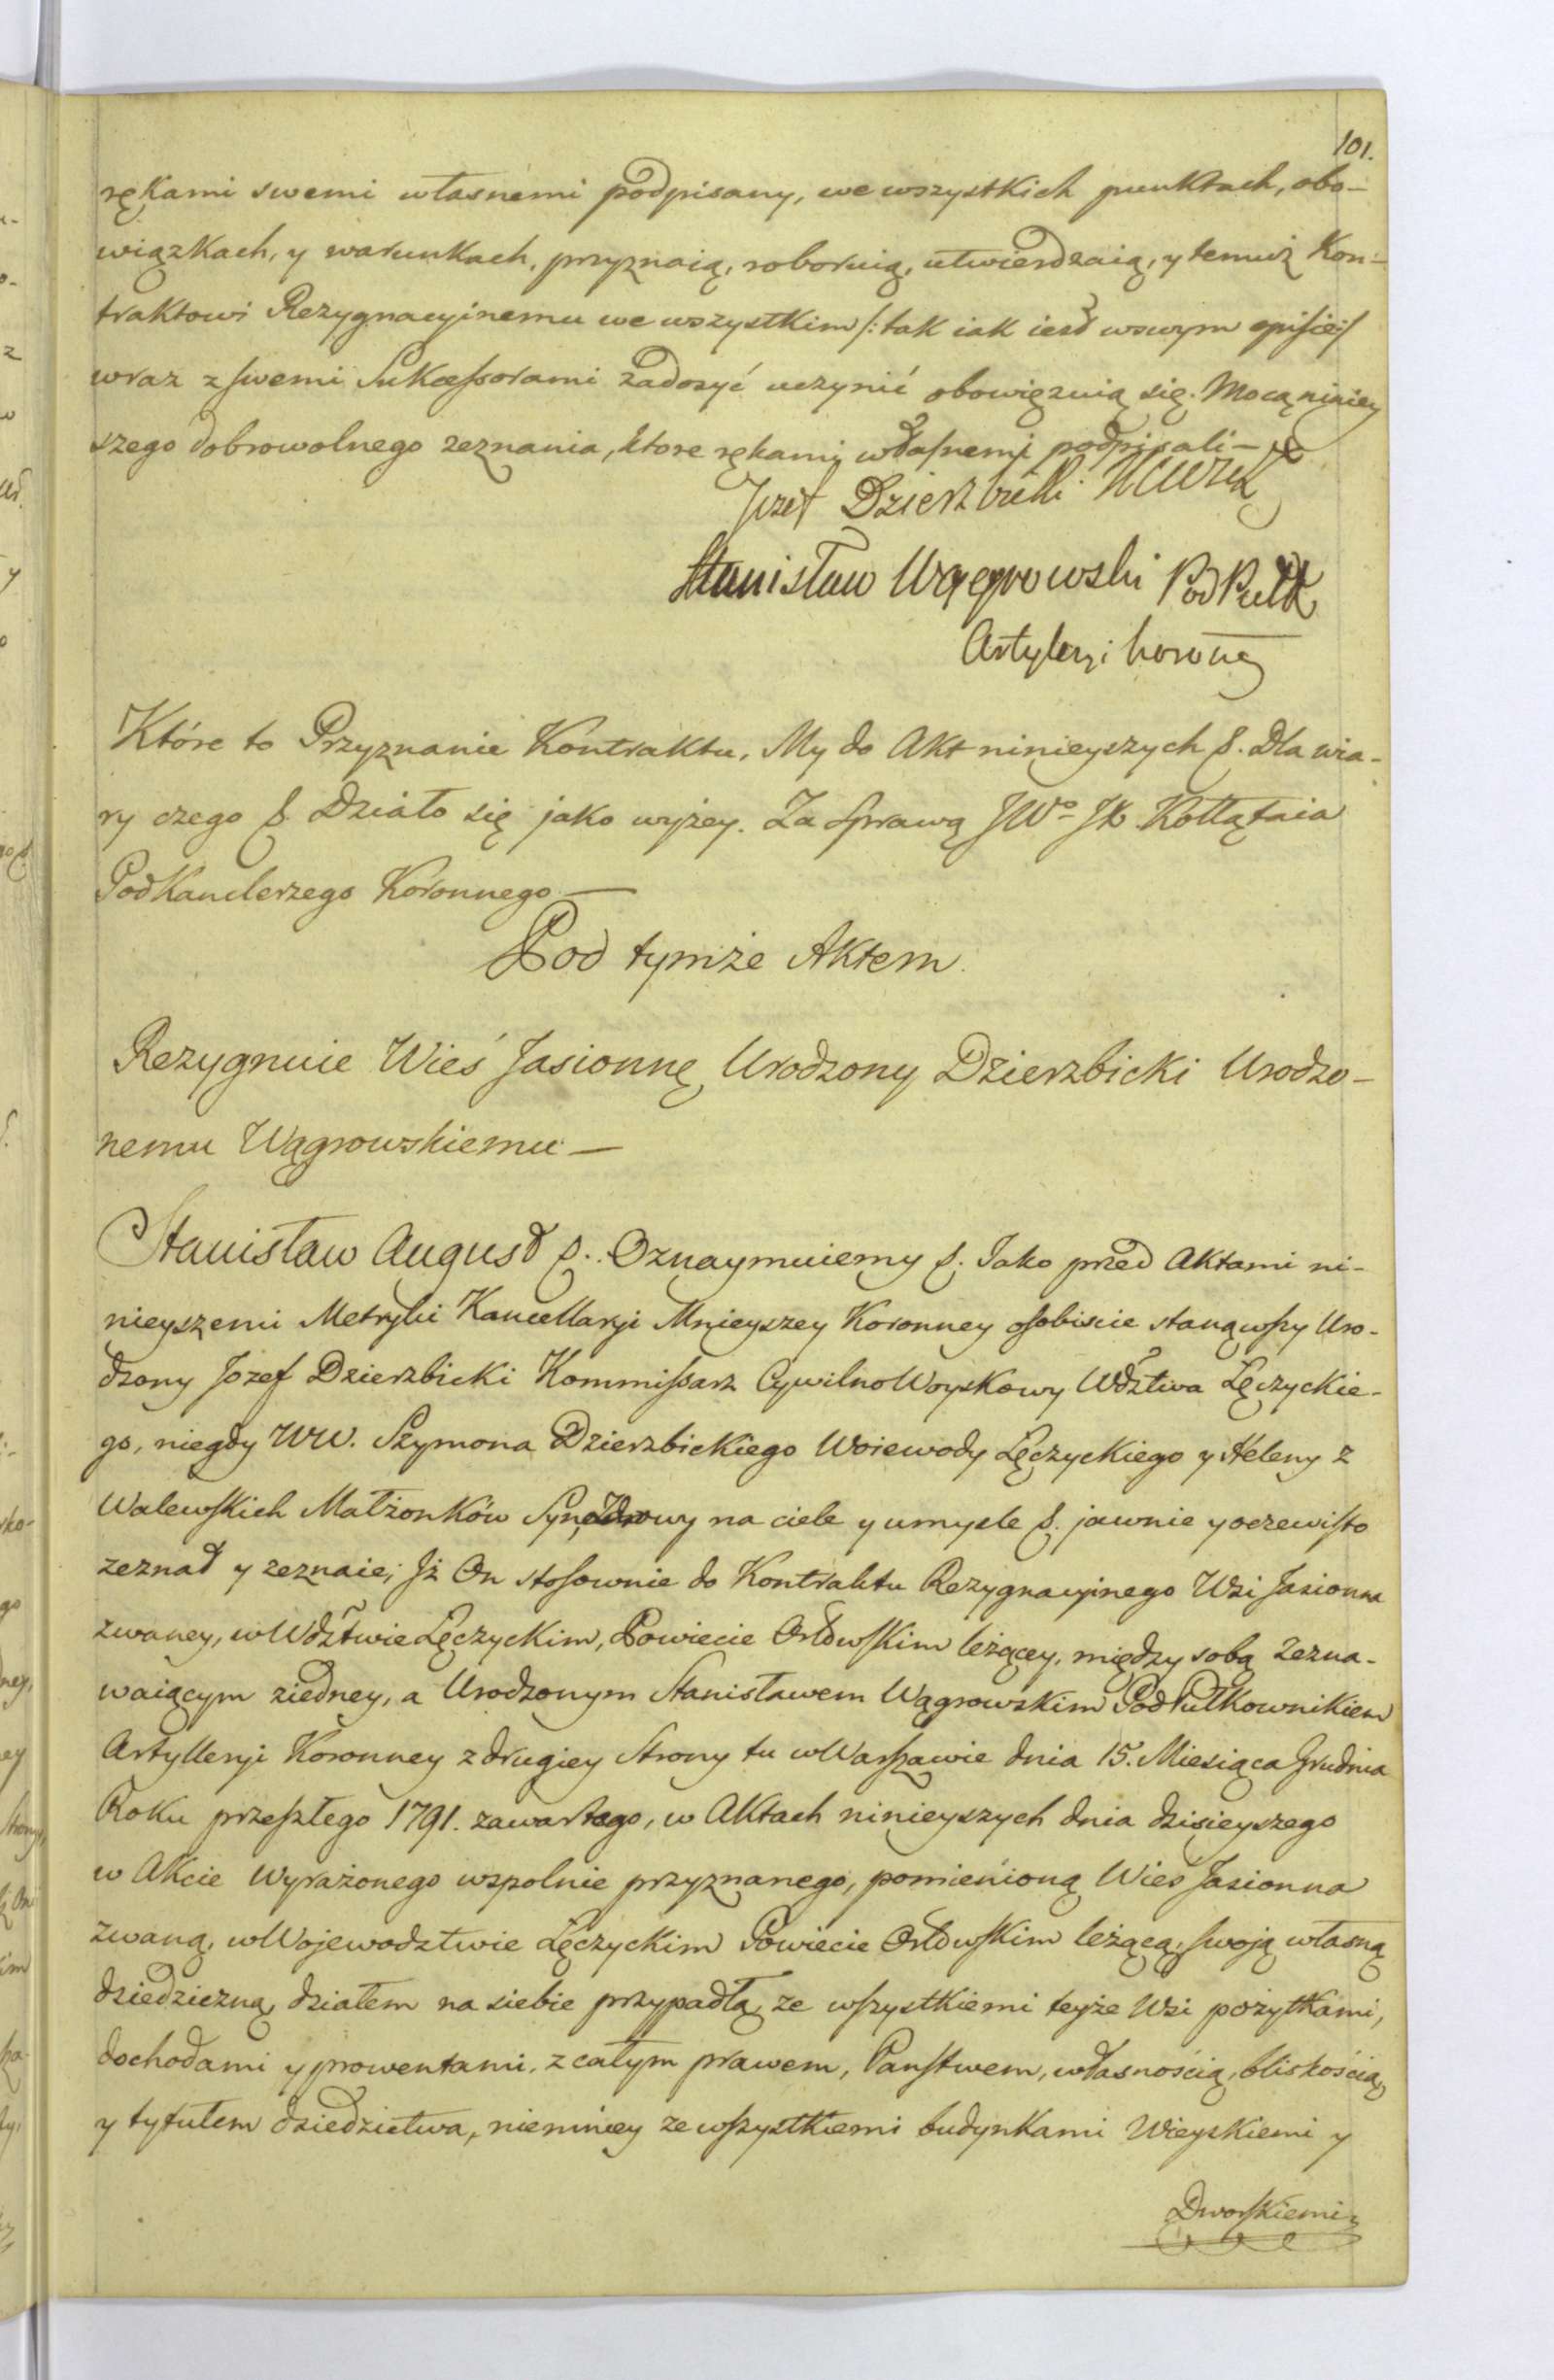 101.
rękami swemi własnemi podpisany, we wszystkich punktach, obo-
wiązkach, y warunkach, przyznaią, roboruią, utwierdzaią, y temuż Kon-
traktowi Rezygnacyinemu we wszystkim /: tak iak iest wswym opisie :/
wraz z swemi Sukcessorami zadosyć uczynić obowięzuią się. Mocą niniey
szego dobrowolnego zeznania, ktore rękami własnemi podpisali —
Jozef Dzierzbicki
Stanisław Wągrowski PodPułk
Artyleryi Koronej
Które to Przyznanie Kontraktu, My do Akt ninieyszych &. Dla wia-
ry czego &. Działo się jako wyżey. Za sprawą JWo JX. Kołłątaia
PodKanclerzego Koronnego —
Pod tymże Aktem
Rezygnuie Wieś Jasionnę Urodzony Dzierzbicki Urodzo-
nemu Wągrowskiemu —
Stanisław August &. Oznaymuiemy &. Jako przed Aktami ni-
nieyszemi Metryki Kancellaryi Mnieyszey Koronney osobiscie stanąwszy Uro-
dzony Jozef Dzierzbicki Kommissarz CywilnoWoyskowy Wdztwa Łęczyckie-
go, niegdy WW. Szymona Dzierzbickiego Woiewody Łęczyckiego y Heleny z
Walewskich Małżonków Syn, Zdrowy na ciele y umysle &. jawnie y oczewisto
zeznał y zeznaie; Jż On stosownie do Kontraktu Rezygnacyinego Wsi Jasionna
zwaney, w Wdztwie Łęczyckim, Powiecie Orłowskim leżącey, między sobą Zezna-
waiącym ziedney, a Urodzonym Stanisławem Wągrowskim PodPułkownikiem
Artylleryi Koronney z drugiey Strony tu w Warszawie dnia 15. Miesiąca Grudnia
Roku przeszłego 1791. zawartego, w Aktach ninieyszych dnia dzisieyszego
w Akcie wyrażonego wspolnie przyznanego, pomienioną Wieś Jasionna
zwaną, w Wojewodztwie Łęczyckim Powiecie Orłowskim leżącą, swoją własną
dziedziczną, działem na siebie przypadłą, ze wszystkiemi teyże Wsi pożytkami,
dochodami y prowentami, z całym prawem, Państwem, własnością, bliskością,
y tytułem dziedzictwa, niemniey ze wszystkiemi budynkami Wieyskiemi y
Dworskiemi